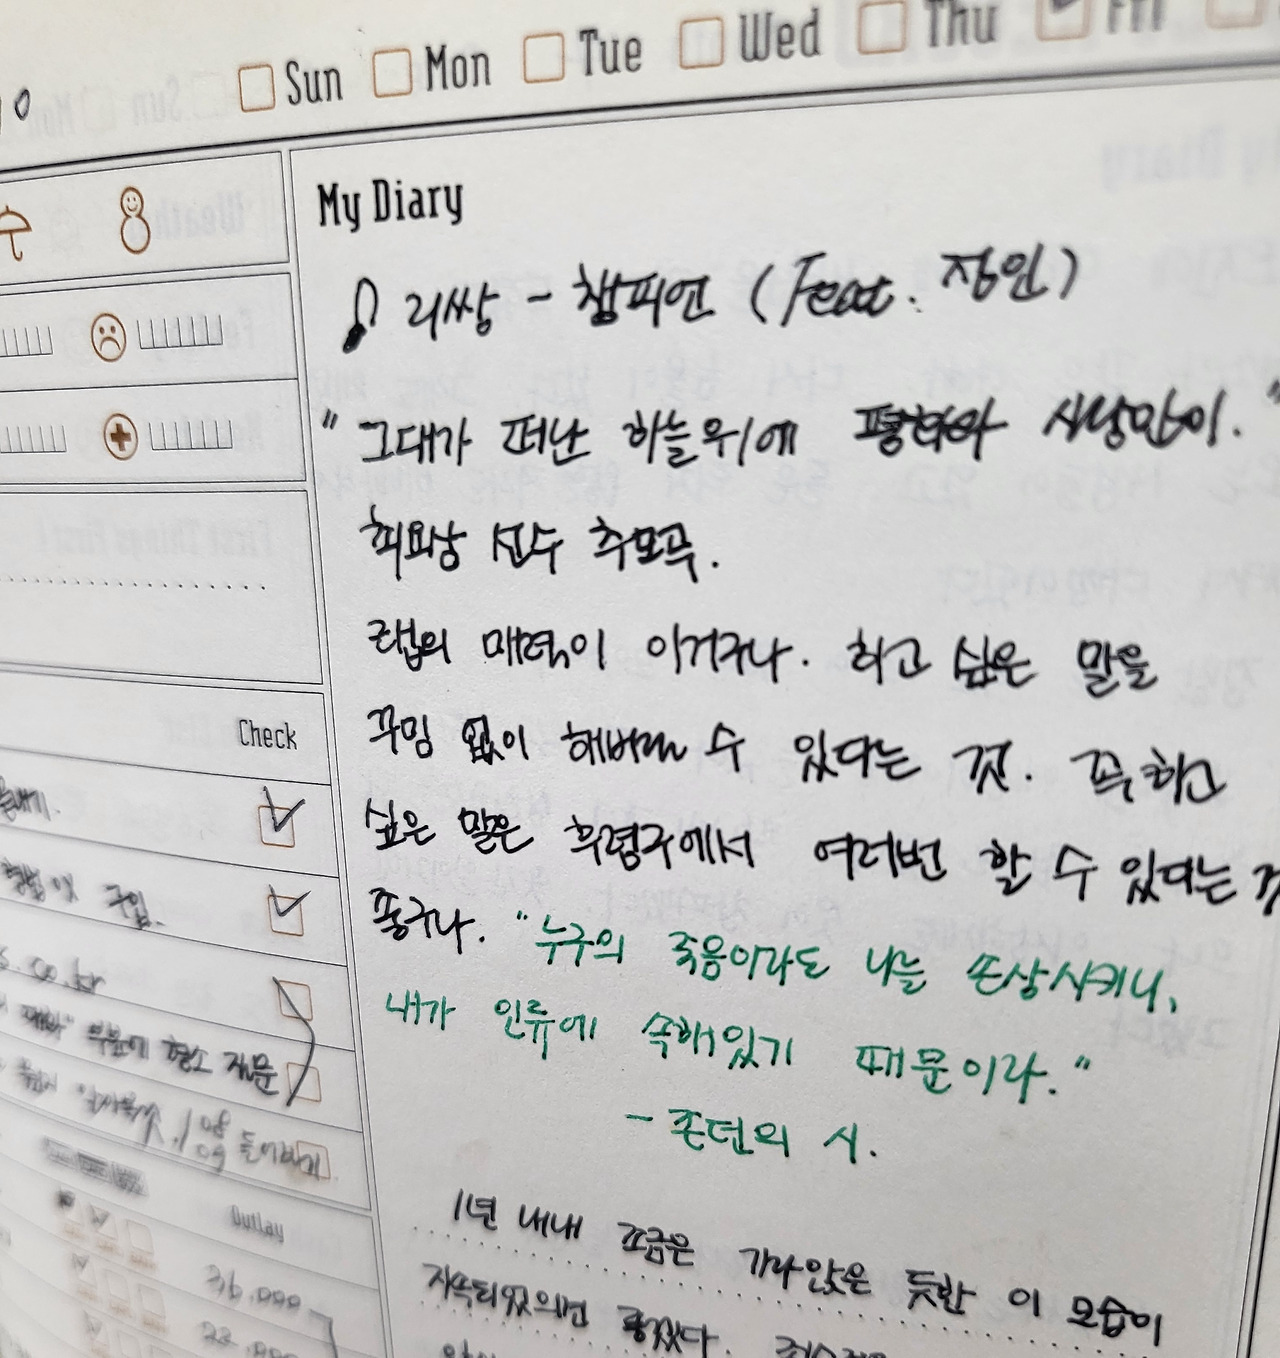 Sun Mon Tue Wed Thu Fri
My Diary
리쌍 - 챔피언 (Feat. 정인)
"그대가 떠난 하늘위에 사랑만이."
최요삼 선수 추모곡.
랩의 매력이 이거구나. 하고 싶은 말을
꾸밈 없이 해버릴 수 있다는 것. 꼭 하고
싶은 말은 후렴구에서 여러번 할 수 있다는 것
좋구나. "누구의 죽음이라도 나를 손상시키니,
내가 인류에 속해있기 때문이라."
- 존던의 시.
1년 내내 조금은 가라앉은 듯한 이 모습이
지속되었으면 좋겠다.
Check
구입.
s.co.kr
부분에 형소 질문
Outlay
36.000